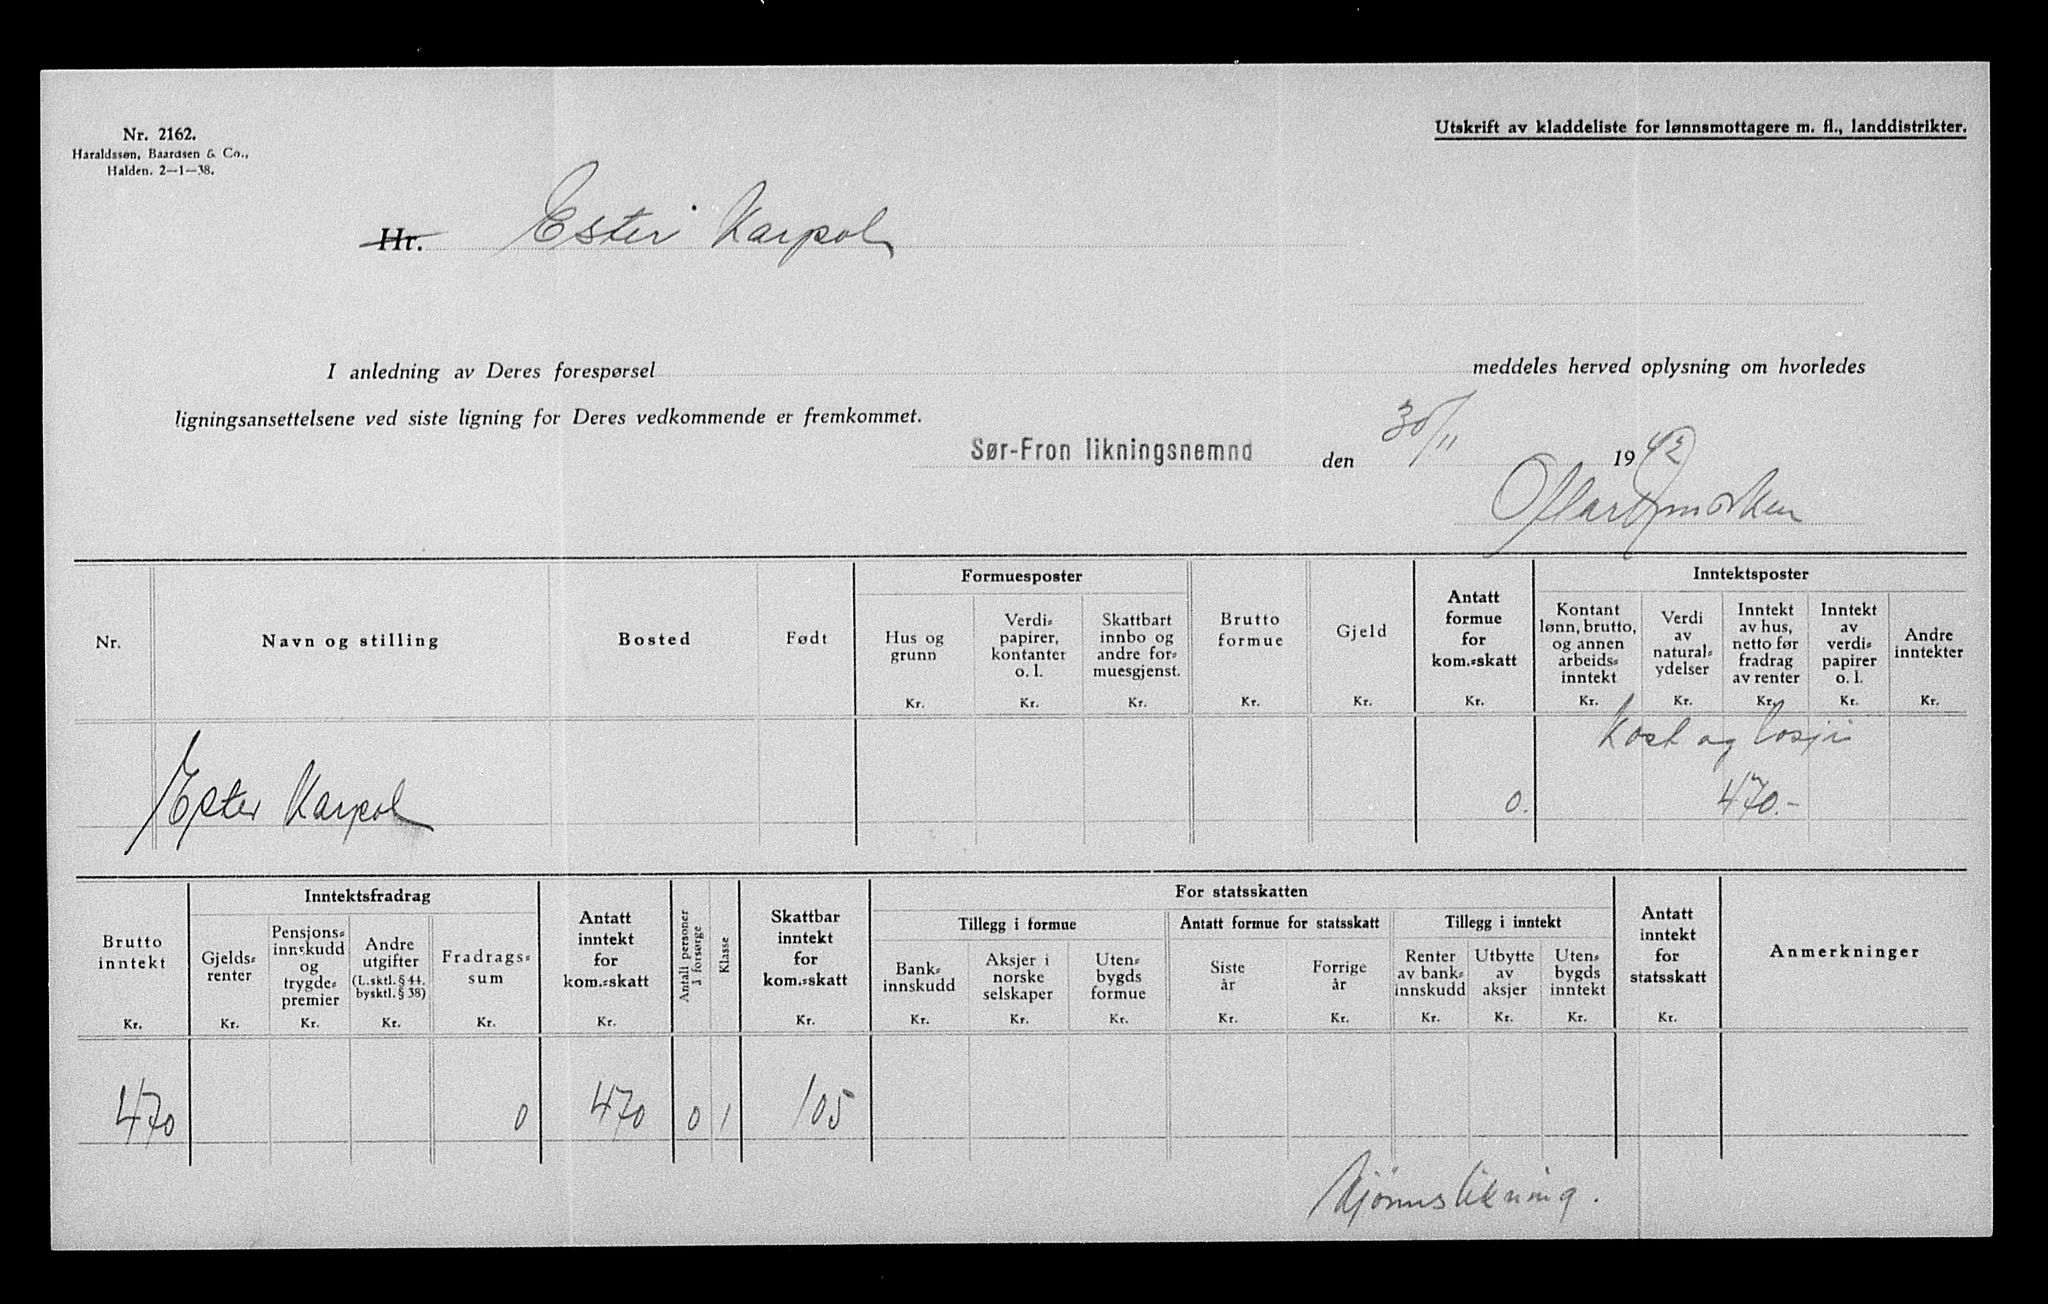 Nr. 2162.
Haraldssøn, Baardsen & Co.,
Halden. 2—1—38.
Utskrift av kladdeliste for lønnsmottagere m. fl., landdistrikter.
Hr. Ester Karpol
I anledning av Deres forespørsel meddeles herved oplysning om hvorledes
ligningsansettelsene ved siste ligning for Deres vedkommende er fremkommet.
Sør-Fron likningsnemnd den 30/11 1942
Nr.
Navn og stilling
Bosted
Født
Formuesposter
Hus og
grunn
Kr.
Verdi-
papirer,
kontanter
o. l.
Kr.
Skattbart
innbo og
andre for-
muesgjenst.
Kr.
Brutto
formue
Kr.
Gjeld
Kr.
Antatt
formue
for
kom.-skatt
Kr.
Inntektsposter
Kontant
lønn, brutto,
og annen
arbeids-
inntekt
Kr.
Verdi
av
natural-
ydelser
Kr.
Inntekt
av hus,
netto før
fradrag
av renter
Kr.
Inntekt
av
verdi-
papirer
o. l.
Kr.
Andre
inntekter
Kr.
Kost og losji
Ester Karpol 0. 470.-
Brutto
inntekt
Kr.
Inntektsfradrag
Gjelds-
renter
Kr.
Pensjons-
innskudd
og
trygde-
premier
Kr.
Andre
utgifter
(L.sktl. § 44,
bysktl. § 38)
Kr.
Fradrags-
sum
Kr.
Antatt
inntekt
for
kom.-skatt
Kr.
Antall personer
å forsørge
Klasse
Skattbar
inntekt
for
kom.-skatt
Kr.
For statsskatten
Tillegg i formue
Bank-
innskudd
Kr.
Aksjer i
norske
selskaper
Kr.
Uten-
bygds
formue
Kr.
Antatt formue for statsskatt
Siste
år
Kr.
Forrige
år
Kr.
Tillegg i inntekt
Renter
av bank-
innskudd
Kr.
Utbytte
av
aksjer
Kr.
Uten-
bygds
inntekt
Kr.
Antatt
inntekt
for
statsskatt
Kr.
Anmerkninger
470 0 470 0 1 105
Skjønnslikning.